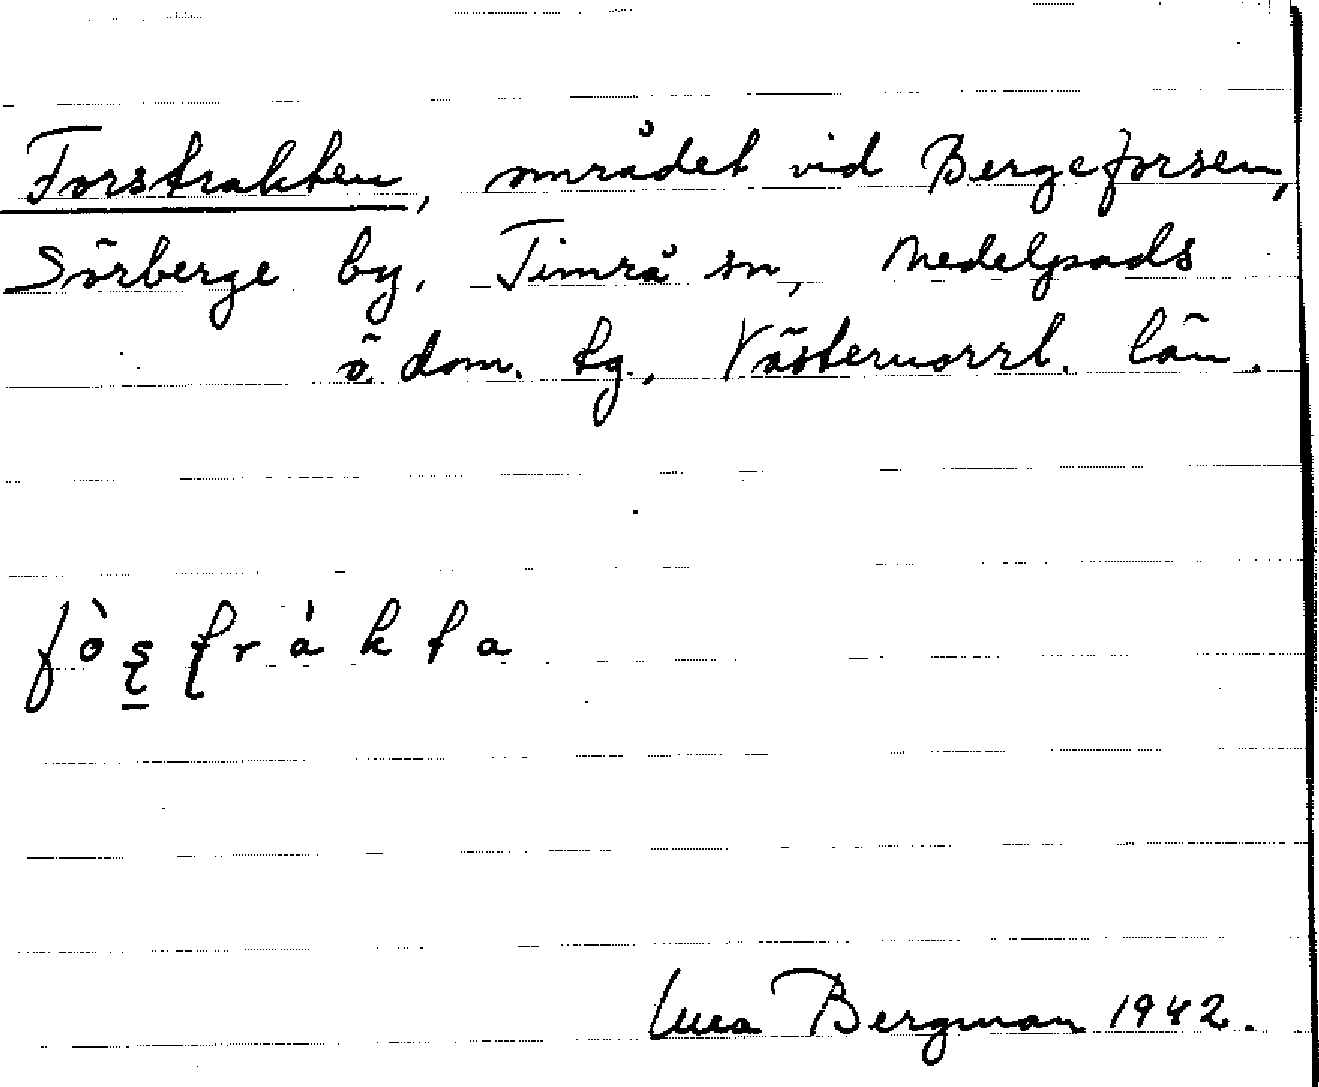 Forstrakten, området vid Bergeforsen,
Sörberge by, Timrå sn, Medelpads
ö. dom. tg., Västernorrl. län.
fò̀ʂʈrákta
Bergman 1942.